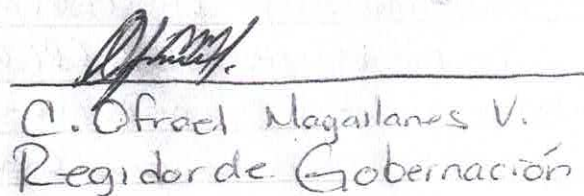 C. Ofrael Magallanes V.
Regidor de Gobernación